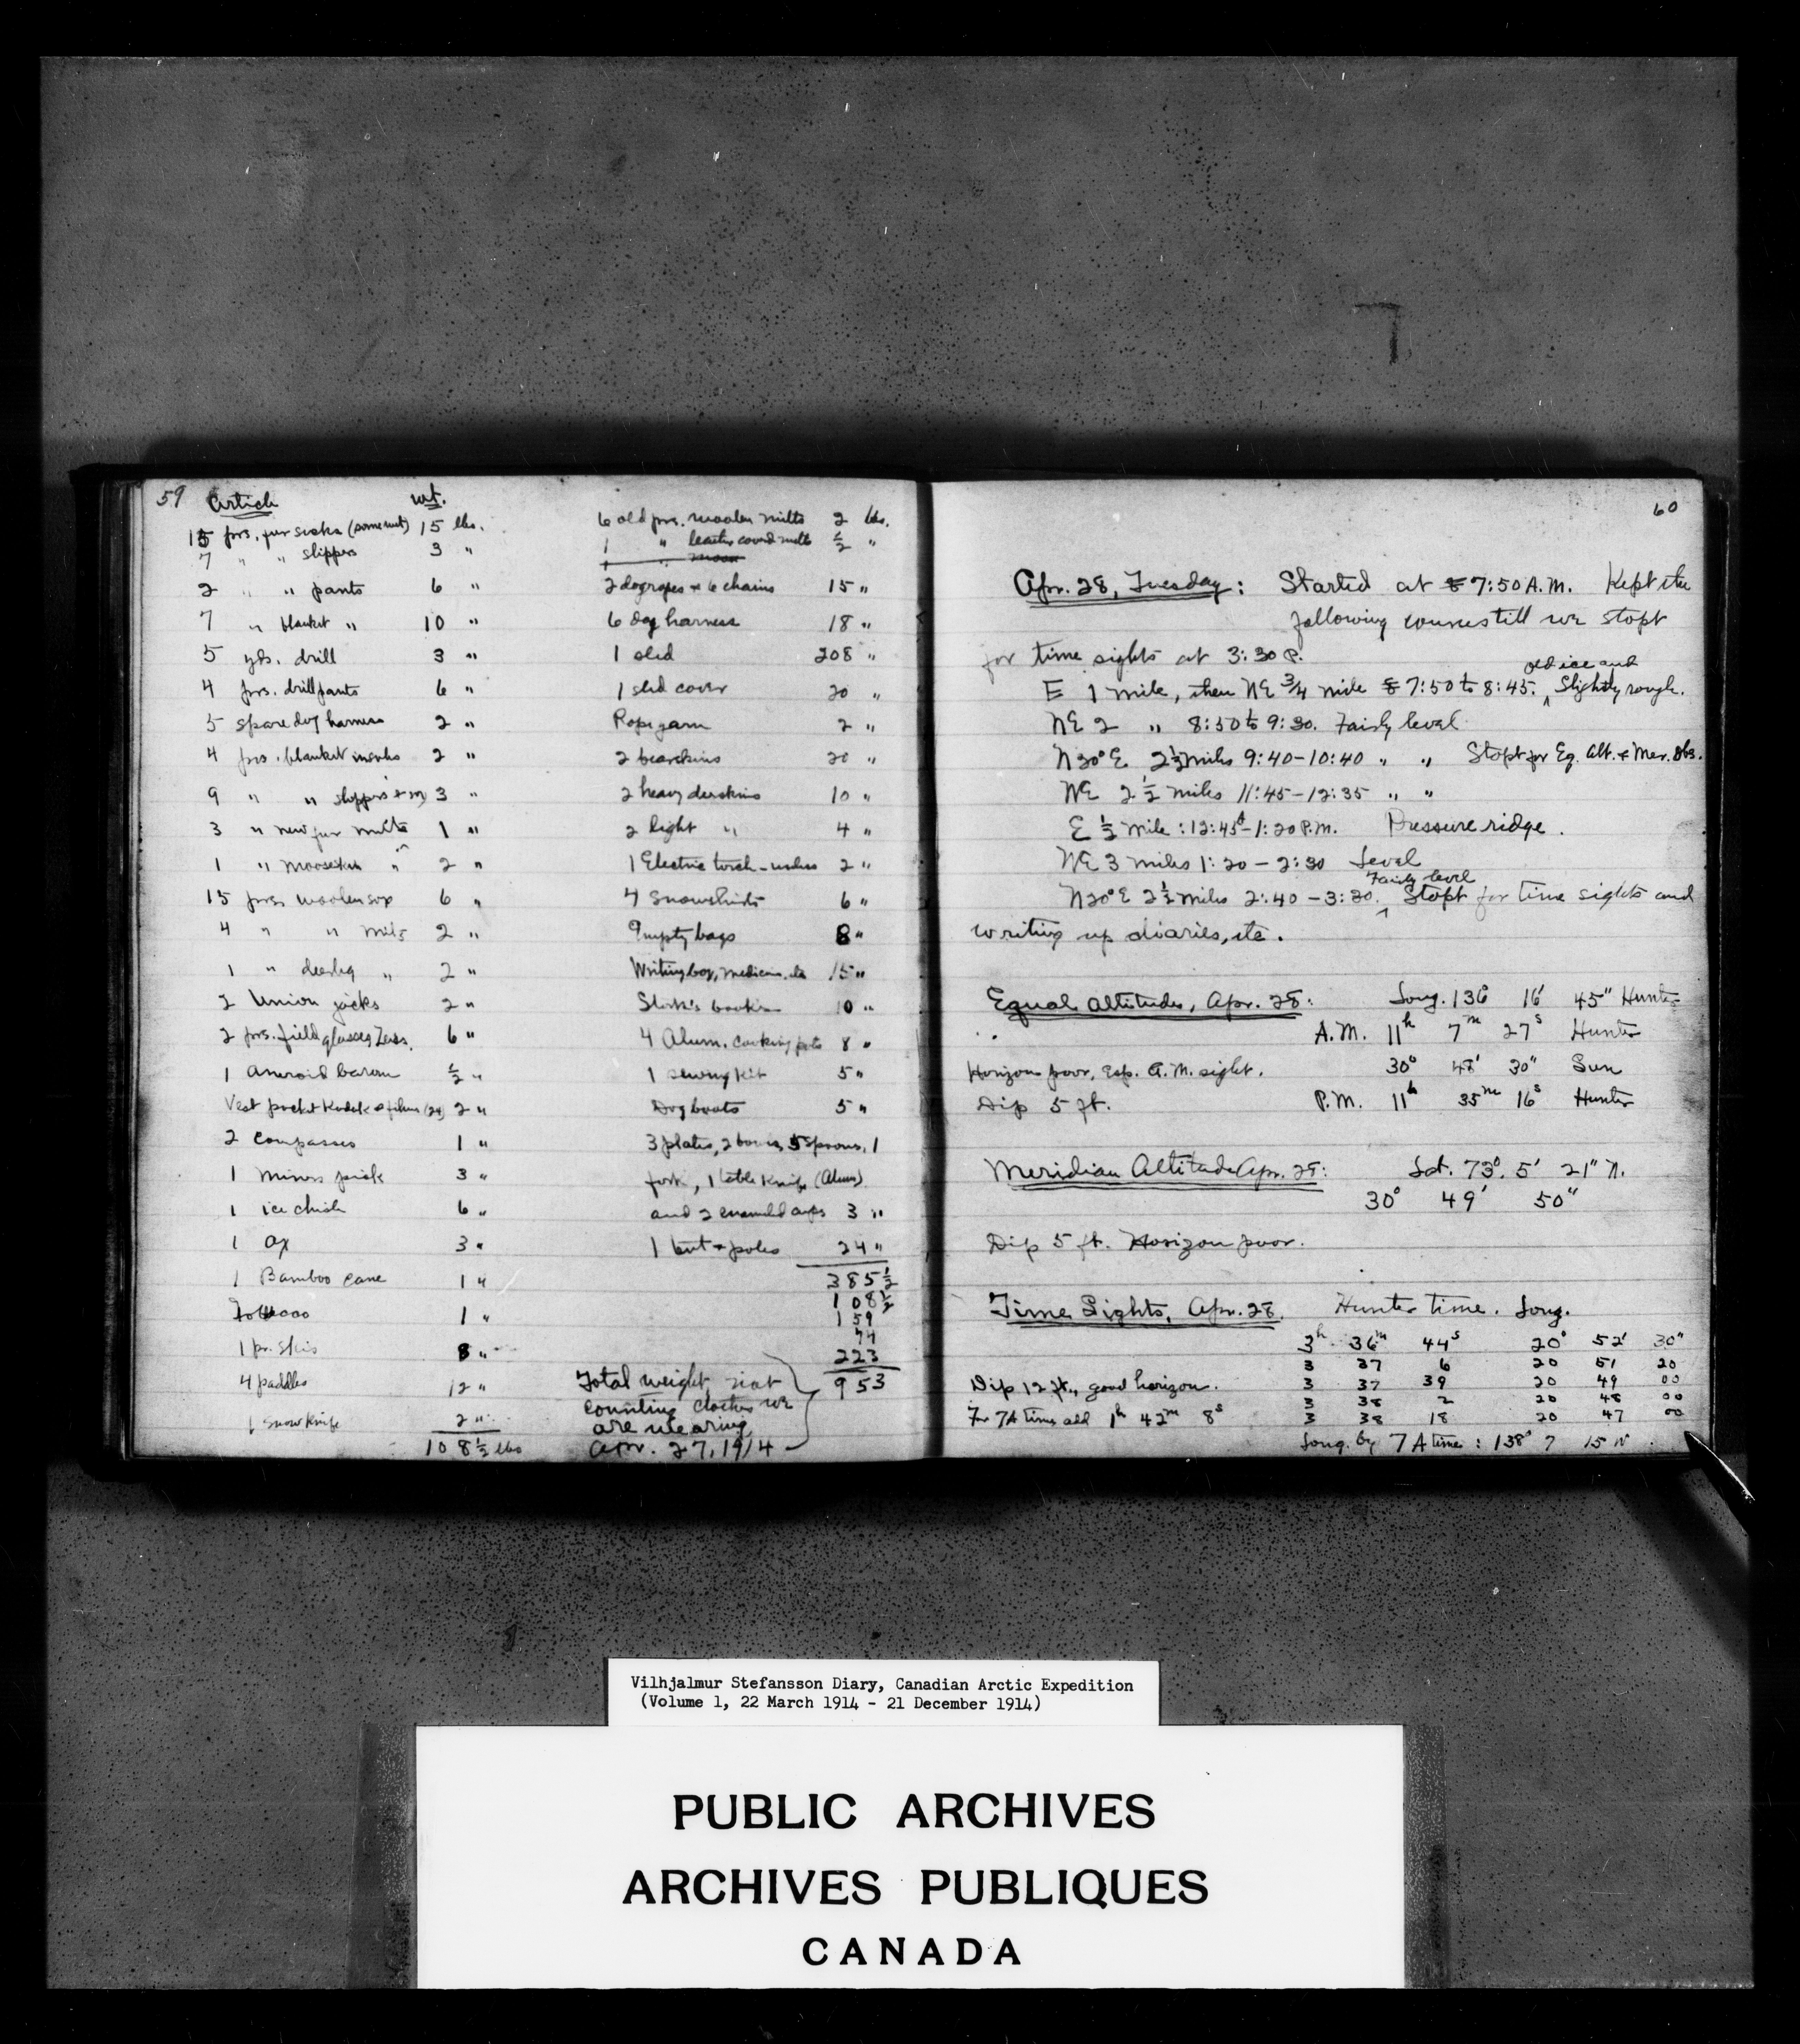 59 Article wt.
15 prs. fur socks (some wet) 15 lbs.
7 " " slippers 3 "
2 " " pants 6 "
7 " blanket " 10 "
5 yds. drill 3 "
4 prs. drill pants 6 "
5 spare dog harness 2 "
4 prs. blanket 2 "
9 " " slippers + 3 "
3 " new fur mitts 1 "
1 " mooseskin " 2 "
15 prs. woolen sox 6 "
4 " " mits 2 "
1 " deerleg " 2 "
2 Union jacks 2 "
2 prs. field glasses Zeiss. 6 "
1 Aneroid barom ½ "
Vest pocket Kodak & films (24) 2 "
2 compasses 1 "
1 miners pick 3 "
1 ice chisle 6 "
1 ax 3 "
1 Bamboo cane 1 "
Tobacco 1 "
1 pr. skis 8 "
4 paddles 12 "
1 snow knife 2 "
108½ lbs
6 old prs. woolen mitts 2 lbs.
1 " leather coverd mitts ½ "
2 dogropes + 6 chains 15 "
6 dog harness 18 "
1 sled 208 "
1 sled cover 20 "
Rope yarn 2 "
2 bearskins 20 "
2 heavy deerskins 10 "
2 light " 4 "
1 Electric torch - useless 2 "
4 Snowshirts 6 "
9 empty bags 8 "
Writing box, medicine, etc 15 "
Stork's books 10 "
4 Alum. cooking pots 8 "
1 sewing kit 5 "
Dog boots 5 "
3 plates, 2 bowls, 5 spoons, 1
fork, 1 table knife (Alum)
and 2 enameled cups 3 "
1 tent + poles 24 "
385½
108½
159
74
223
953
Total weight not
counting clothes we
are wearing
Apr. 27, 1914
60
Apr. 28, Tuesday: Started at 7:50 A.M. Kept the
following courses till we stopt
for time sights at 3:30 P.
E 1 mile, then NE ¾ mile 7:50 to 8:45. old ice and Slightly rough.
NE 2 " 8:50 to 9:30. Fairly level
N20°E 2½ miles 9:40-10:40 " " Stopt for Eq. Alt. & Mer. Obs.
NE 2½ miles 11:45-12:35 " "
E ½ mile: 12:45-1:20 P.M. Pressure ridge.
NE 3 miles 1:20 - 2:30 Level
N20°E 2½ miles 2:40 - 3:30. Fairly level Stopt for time sights and
writing up diaries, etc.
Equal Altitudes, Apr. 28: Long. 136° 16' 45" Hunter
A.M. 11h 7m 27s Hunter
Horizon poor, esp. A.M. sight. 30° 48' 30" Sun
Dip 5 ft. P.M. 11h 35m 16s Hunter
Meridian Altitude Apr. 28: Lat. 73° 5' 21" N.
30° 49' 50"
Dip 5 ft. Horizon poor.
Time Sights, Apr. 28. Hunter time. Long.
3h 36m 44s 20° 52' 30"
3 37 6 20 51 20
Dip 12 ft., good horizon. 3 37 39 20 49 00
3 38 2 20 48 00
For 7A time add 1h 42m 8s 3 38 18 20 47 00
Long. by 7A time: 138° 7 15 W.
Vilhjalmur Stefansson Diary, Canadian Arctic Expedition
(Volume 1, 22 March 1914 - 21 December 1914)
PUBLIC ARCHIVES
ARCHIVES PUBLIQUES
CANADA